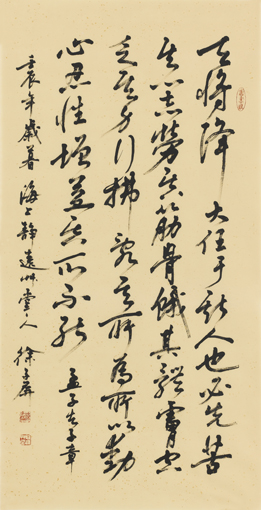 天将降大任于斯人也必先苦
其心志勞其筋骨餓其體膚空
乏其身行拂亂其所為所以動
心忍性增益其所不能 孟子告子章
壬辰年歲暮海上靜遠艸堂人 徐